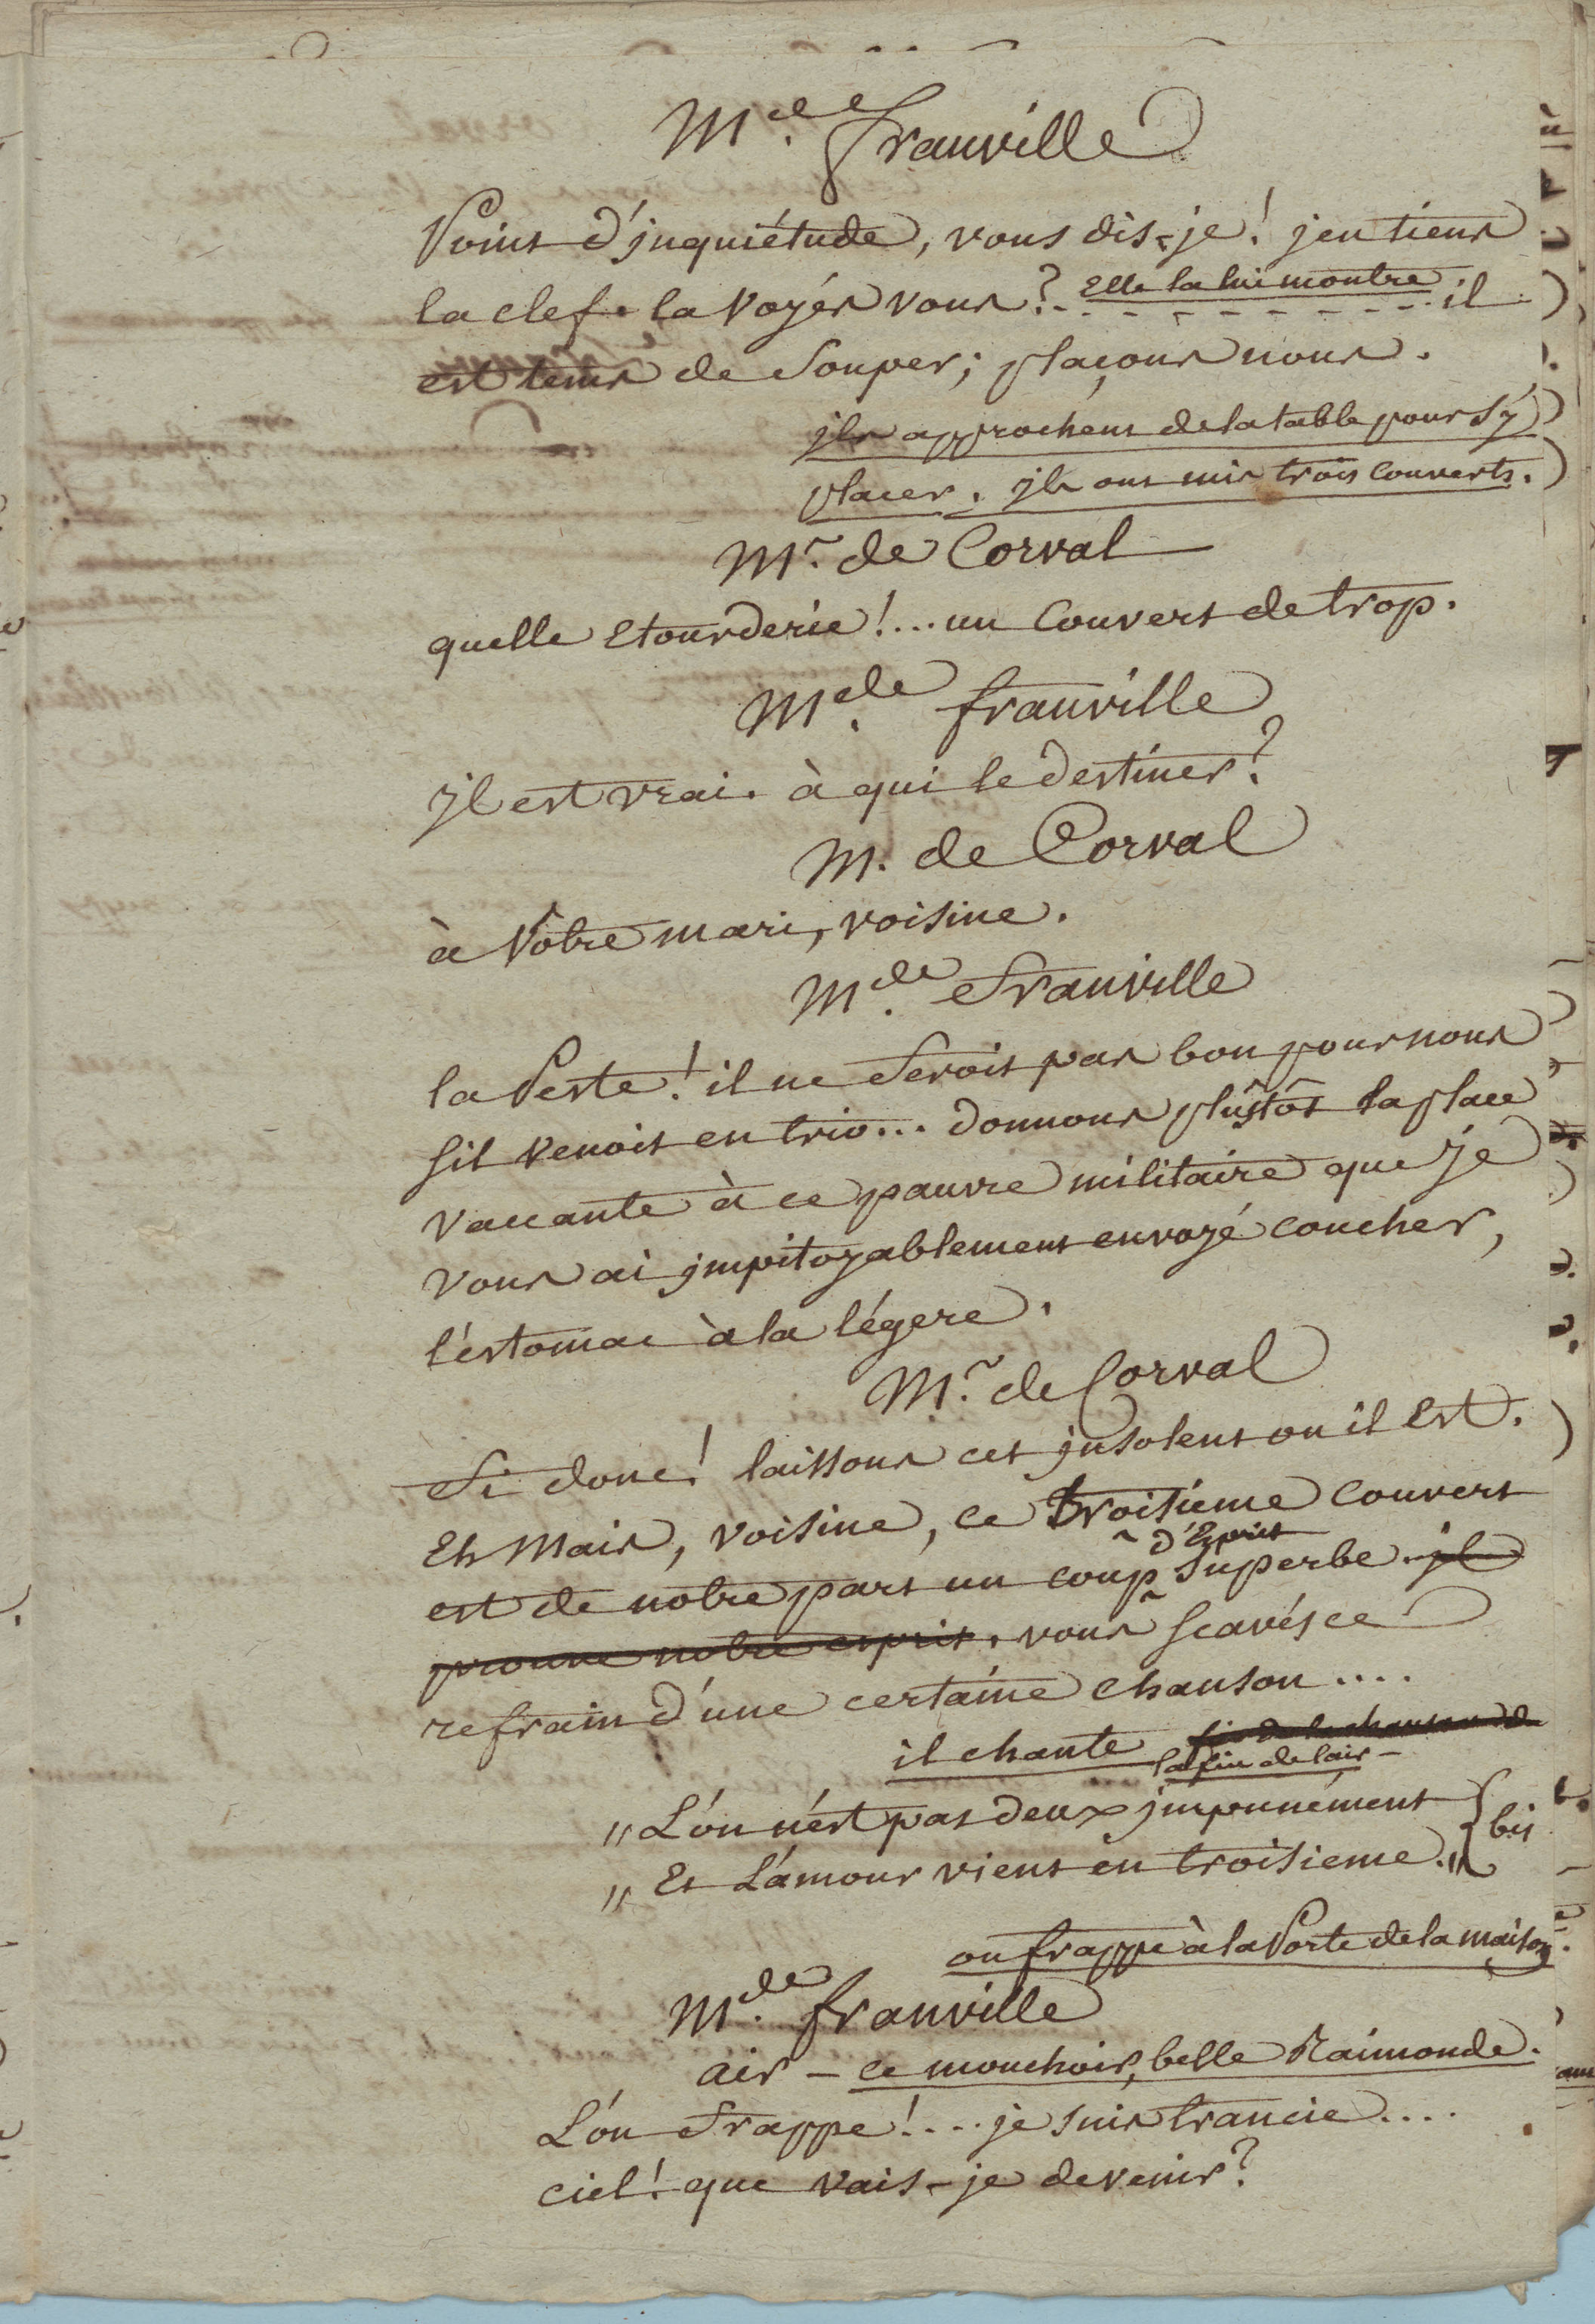 Mde. franville
Point d'jnquiétude, vous dis-je! j'en tiens
la clef. la voyés vous? Elle la lui montre il
est tems de souper; plaçons nous.
jls approchent de la table pour s'ÿ
placer. jls ont mis trois couverts.
Mr. de Corval
quelle Etourderie!... un Couvert de trop.
Mde. franville
jl est vrai. à qui le destiner?
M. de Corval
à Votre mari, voisine.
Mde. franville
la Peste! il ne seroit pas bon pour nous
s'il venoit en trio... donnons plûstôt la place
vaccante à ce pauvre militaire que je
vous ai jmpitoyablement envoyé coucher,
l'éstomac à la légere.
Mr. de Corval
fi donc! laissons cet jnsolent ou il Est.
Eh mais, voisine, ce troisieme couvert
est de nôtre part un coup d'Esprit superbe. jl
prouve nôtre esprit. vous scavés ce
refrain d'une certaine chanson....
il chante fin de la chanson
la fin de l'air -
,, L'on n'ést pas deux jmpunément } bis
,, Et L'amour vient en troisieme. ,,
on frappe à la Porte de la maison.
Mde. franville
air - ce mouchoir, belle Raimonde.
L'on frappe!.... je suis transie....
ciel! que vais-je devenir?